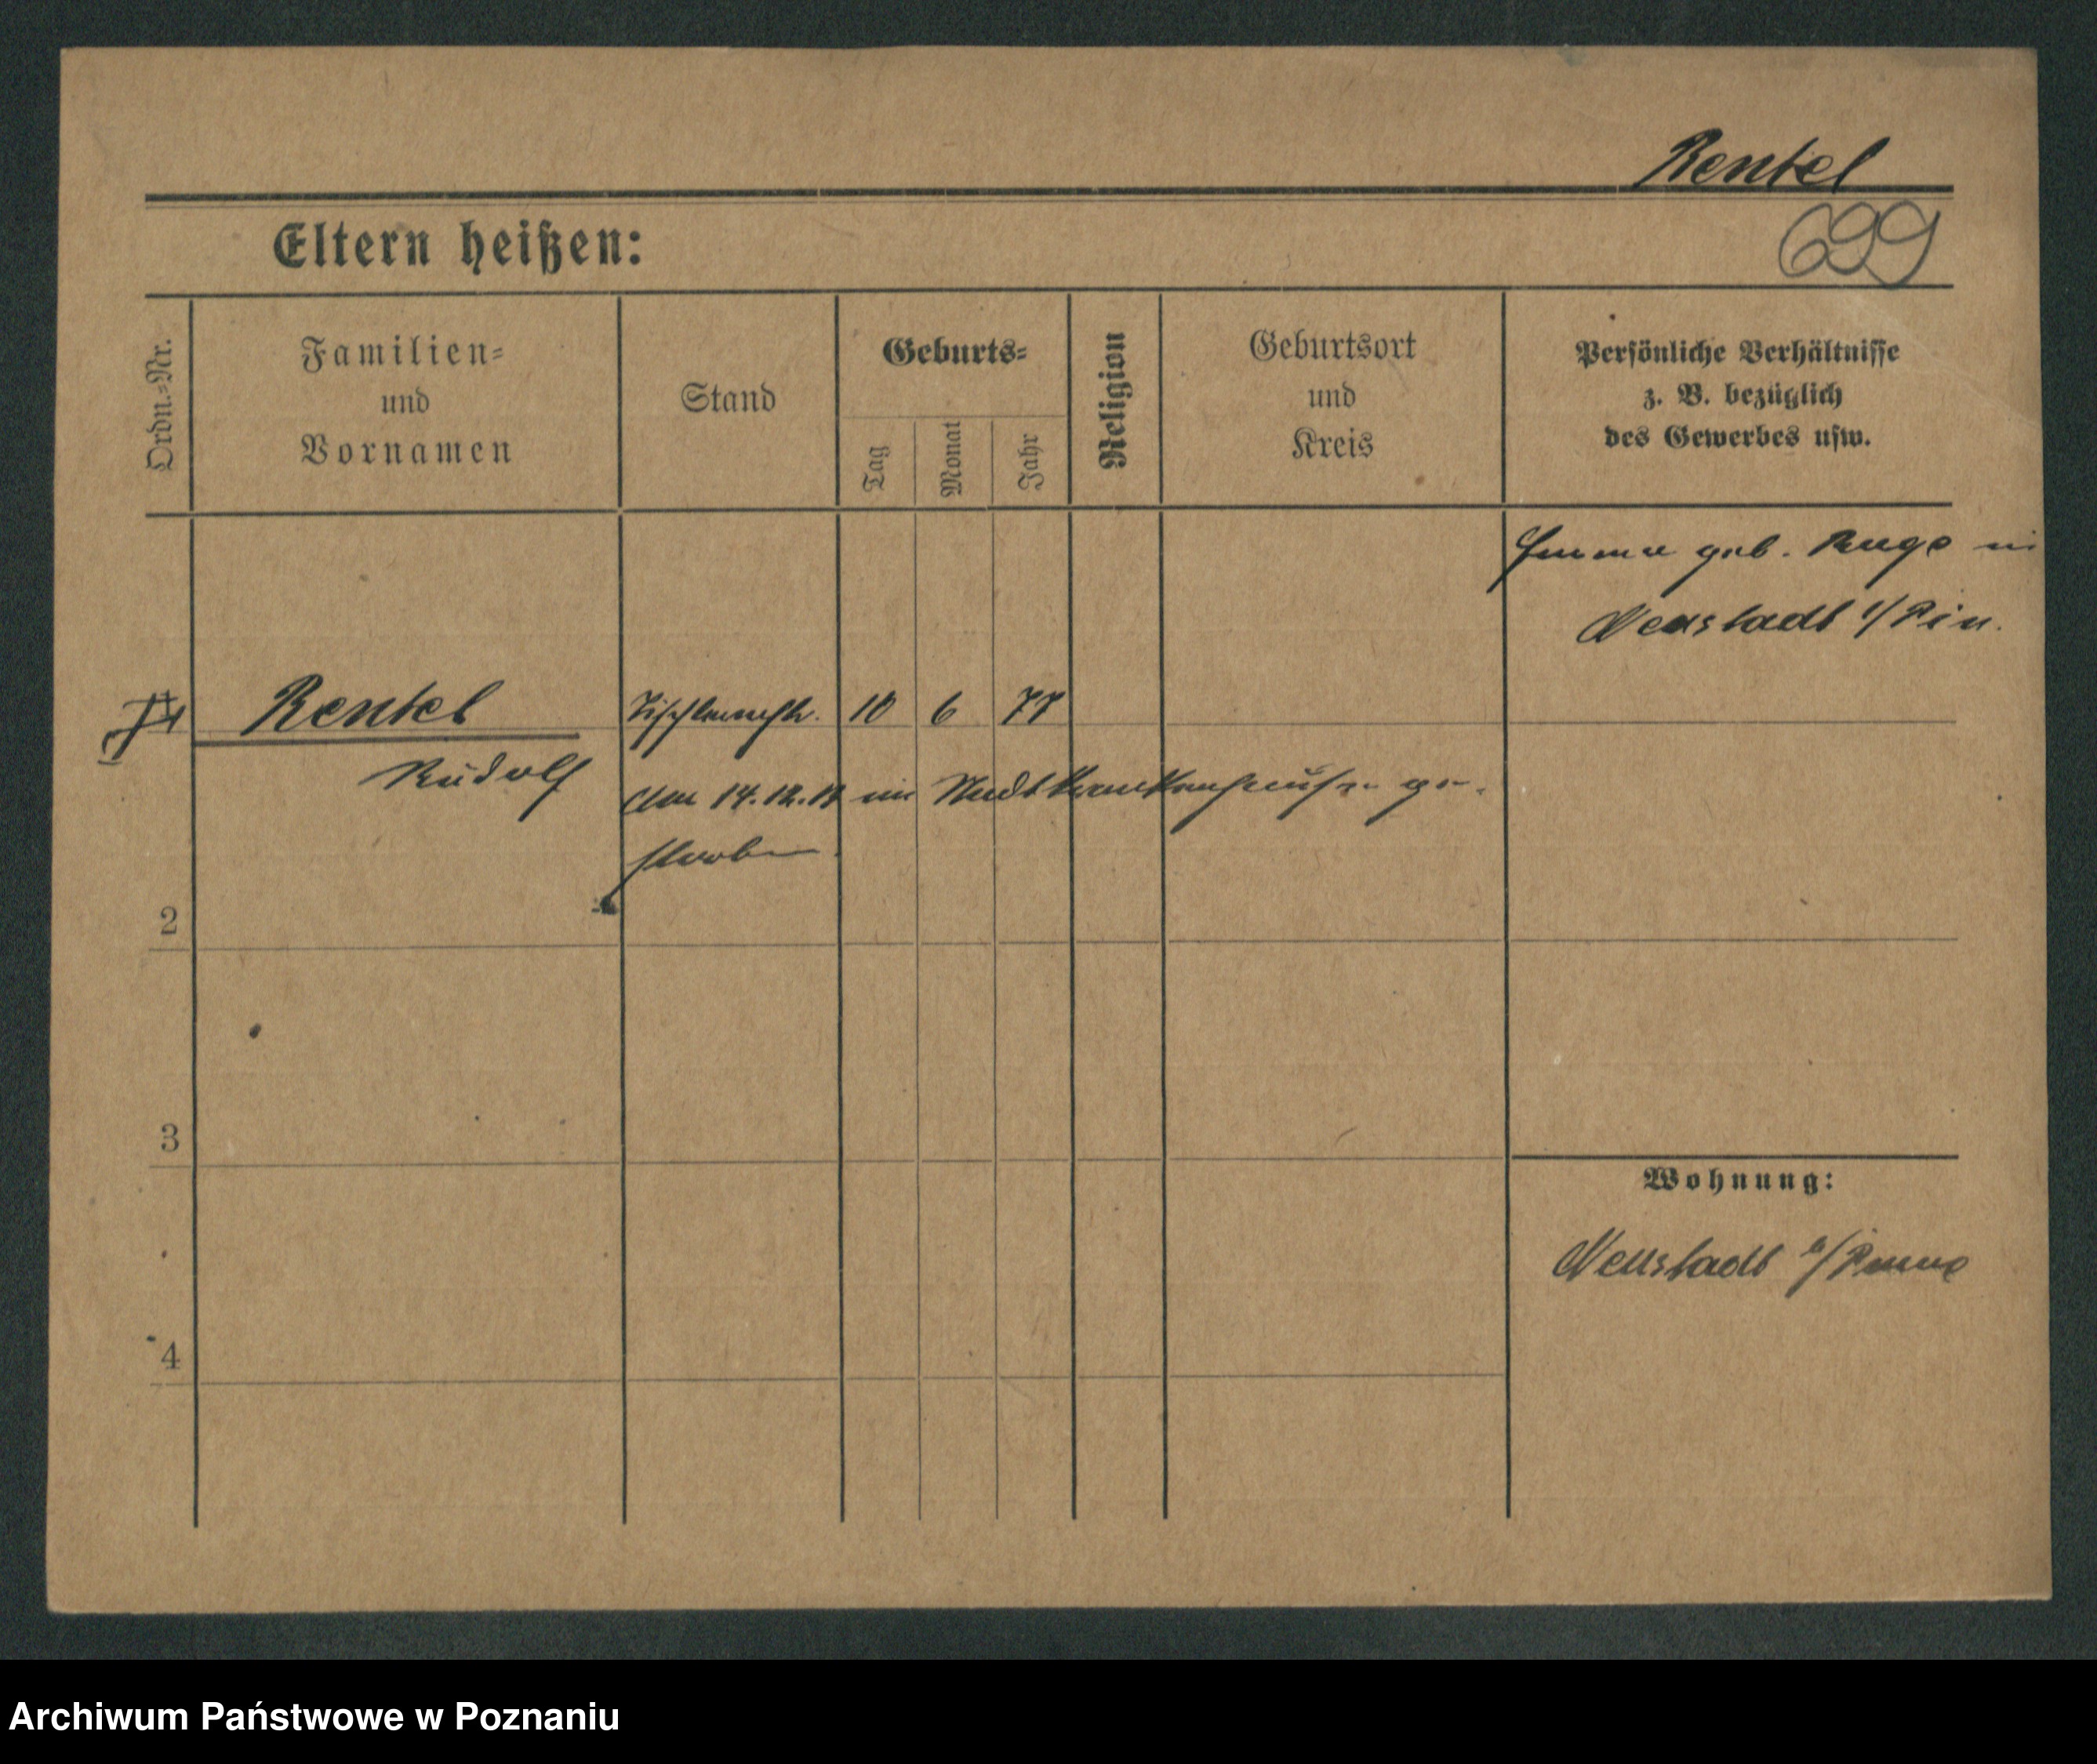 Rentel
699
Eltern heißen:
Ordn.=Nr.
Familien=
und
Vornamen
Stand
Geburts=
Tag
Monat
Jahr
Religion
Geburtsort
und
Kreis
Persönliche Verhältnisse
z. B. bezüglich
des Gewerbes usw.
geb. Ruge in
Neustadt /Pin.
1
Rentel
Tischlermstr. 10 6 77
Rudolf
Am 14.12.17 im Stadtkrankenhause ge-
storben
2
3
Wohnung:
Neustadt /Pinne
4
Archiwum Państwowe w Poznaniu